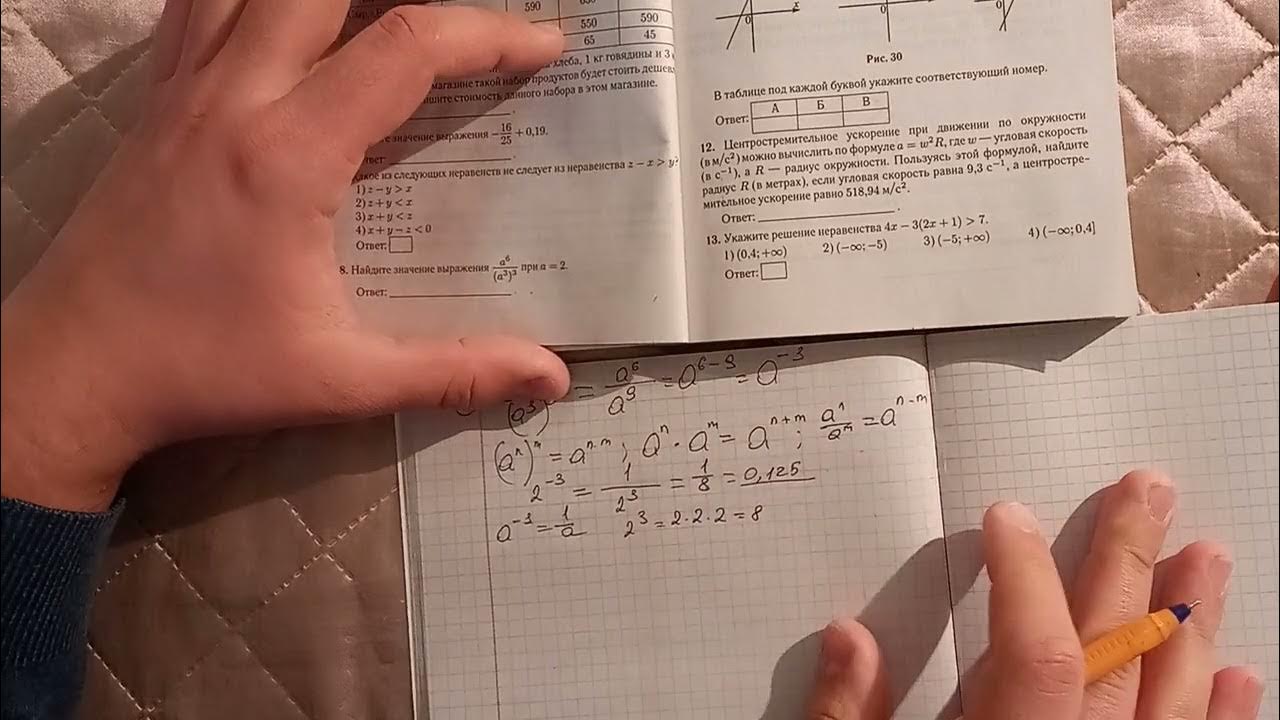 590
550 590
65 45
хлеба, 1 кг говядины и 3
магазине такой набор продуктов будет стоить дешев
стоимость данного набора в этом магазине.
значение выражения −16/25 + 0,19.
из следующих неравенств не следует из неравенства z − x > y?
1) z − y > x
2) z + y < x
3) x + y < z
4) x + y − z < 0
Ответ:
8. Найдите значение выражения a^6/(a^3)^3 при a = 2.
Ответ:
x
0 0 0
Рис. 30
В таблице под каждой буквой укажите соответствующий номер.
А Б В
Ответ:
12. Центростремительное ускорение при движении по окружности
(в м/с²) можно вычислить по формуле a = w²R, где w — угловая скорость
(в с⁻¹), а R — радиус окружности. Пользуясь этой формулой, найдите
радиус R (в метрах), если угловая скорость равна 9,3 с⁻¹, а центростре-
мительное ускорение равно 518,94 м/с².
Ответ: .
13. Укажите решение неравенства 4x − 3(2x + 1) > 7.
1) (0,4; +∞) 2) (−∞; −5) 3) (−5; +∞) 4) (−∞; 0,4]
Ответ:
(a^3) = a^6/a^9 = a^(6−9) = a^−3
(a^n)^m = a^(n·m) ; a^n · a^m = a^(n+m) ; a^n/a^m = a^(n−m)
2^−3 = 1/2^3 = 1/8 = 0,125
a^−1 = 1/a 2^3 = 2·2·2 = 8